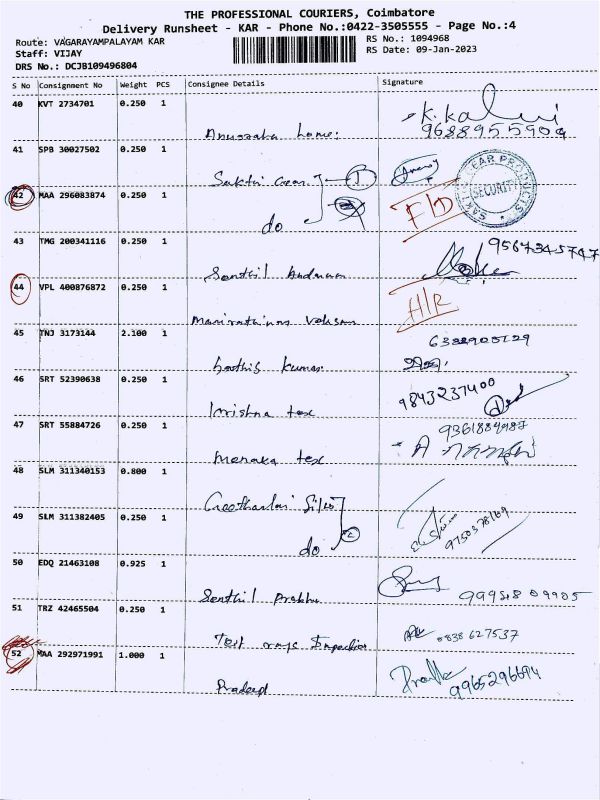 THE PROFESSIONAL COURIERS, Coimbatore
Delivery Runsheet - KAR - Phone No.:0422-3505555 - Page No.:4
Route: VAGARAYAMPALAYAM KAR
RS No.: 1094968
Staff: VIJAY
RS Date: 09-Jan-2023
DRS No.: DCJB109496804
S No Consignment No Weight PCS Consignee Details Signature
40 KVT 2734701 0.250 1
K. Kalui
9688955904
home
41 SPB 30027502 0.250 1
Sakthi Gear 1
SECURITY
42 MAA 296083874 0.250 1
F/D
do
43 TMG 200341116 0.250 1
9567345747
Senthil
44 VPL 400876872 0.250 1
H/R
45 TNJ 3173144 2.100 1
kumar
46 SRT 52390638 0.250 1
9843237400
Krishna tex
47 SRT 55884726 0.250 1
9361884987
Menaka tex
48 SLM 311340153 0.800 1
49 SLM 311382405 0.250 1
2
9750378169
do
50 EDQ 21463108 0.925 1
Senthil Prabhu
51 TRZ 42465504 0.250 1
9838627537
Test
52 MAA 292971991 1.000 1
Pradeep
9965296694